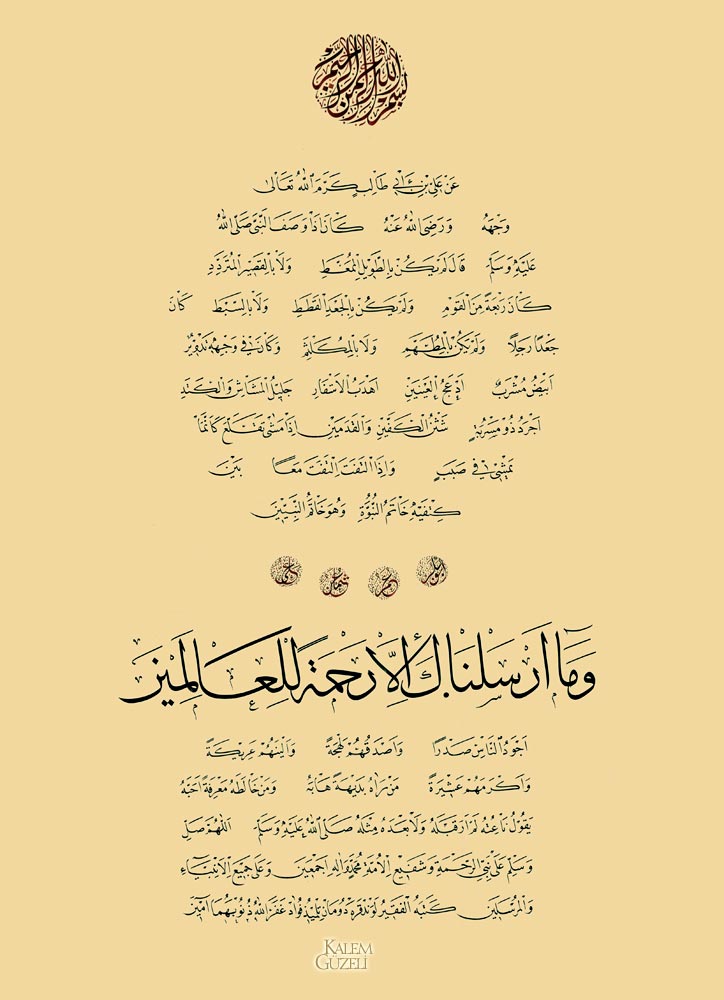 بسم الله الرحمن الرحيم
عَنْ عَلِيِّ بْنِ اَبِي طَالِبٍ كَرَّمَ اللّٰهُ تَعَالٰى
وَجْهَهُ وَرَضِىَ اللّٰهُ عَنْهُ كَانَ اِذَا وَصَفَ النَّبِيَّ صَلَّى اللّٰهُ
عَلَيْهِ وَسَلَّمَ قَالَ لَمْ يَكُنْ بِالطَّوِيلِ الْمُمَّغِطِ وَلَا بِالْقَصِيرِ الْمُتَرَدِّدِ
كَانَ رَبْعَةً مِنَ الْقَوْمِ وَلَمْ يَكُنْ بِالْجَعْدِ الْقَطَطِ وَلَا بِالسَّبْطِ كَانَ
جَعْدًا رَجِلًا وَلَمْ يَكُنْ بِالْمُطَهَّمِ وَلَا بِالْمُكَلْثَمِ وَكَانَ فِي وَجْهِهِ تَدْوِيرٌ
اَبْيَضُ مُشْرَبٌ اَدْعَجُ الْعَيْنَيْنِ اَهْدَبُ الْاَشْفَارِ جَلِيلُ الْمُشَاشِ وَالْكَتَدِ
اَجْرَدُ ذُو مَسْرُبَةٍ شَثْنُ الْكَفَّيْنِ وَالْقَدَمَيْنِ اِذَا مَشٰى تَقَلَّعَ كَاَنَّمَا
يَمْشِي فِي صَبَبٍ وَاِذَا الْتَفَتَ الْتَفَتَ مَعًا بَيْنَ
كَتِفَيْهِ خَاتَمُ النُّبُوَّةِ وَهُوَ خَاتَمُ النَّبِيِّينَ
ابوبكر عمر عثمان علي
وَمَا اَرْسَلْنَاكَ اِلَّا رَحْمَةً لِلْعَالَمِينَ
اَجْوَدُ النَّاسِ صَدْرًا وَاَصْدَقُهُمْ لَهْجَةً وَاَلْيَنُهُمْ عَرِيكَةً
وَاَكْرَمُهُمْ عَشِيرَةً مَنْ رَاٰهُ بَدِيهَةً هَابَهُ وَمَنْ خَالَطَهُ مَعْرِفَةً اَحَبَّهُ
يَقُولُ نَاعِتُهُ لَمْ اَرَ قَبْلَهُ وَلَا بَعْدَهُ مِثْلَهُ صَلَّى اللّٰهُ عَلَيْهِ وَسَلَّمَ اَللّٰهُمَّ صَلِّ
وَسَلِّمْ عَلٰى نَبِيِّ الرَّحْمَةِ وَشَفِيعِ الْاُمَّةِ مُحَمَّدٍ وَاٰلِهِ اَجْمَعِينَ وَعَلٰى جَمِيعِ الْاَنْبِيَاءِ
وَالْمُرْسَلِينَ كَتَبَهُ الْفَقِيرُ غَفَرَ اللّٰهُ ذُنُوبَهُمَا اٰمِينَ
KALEM
GÜZELI